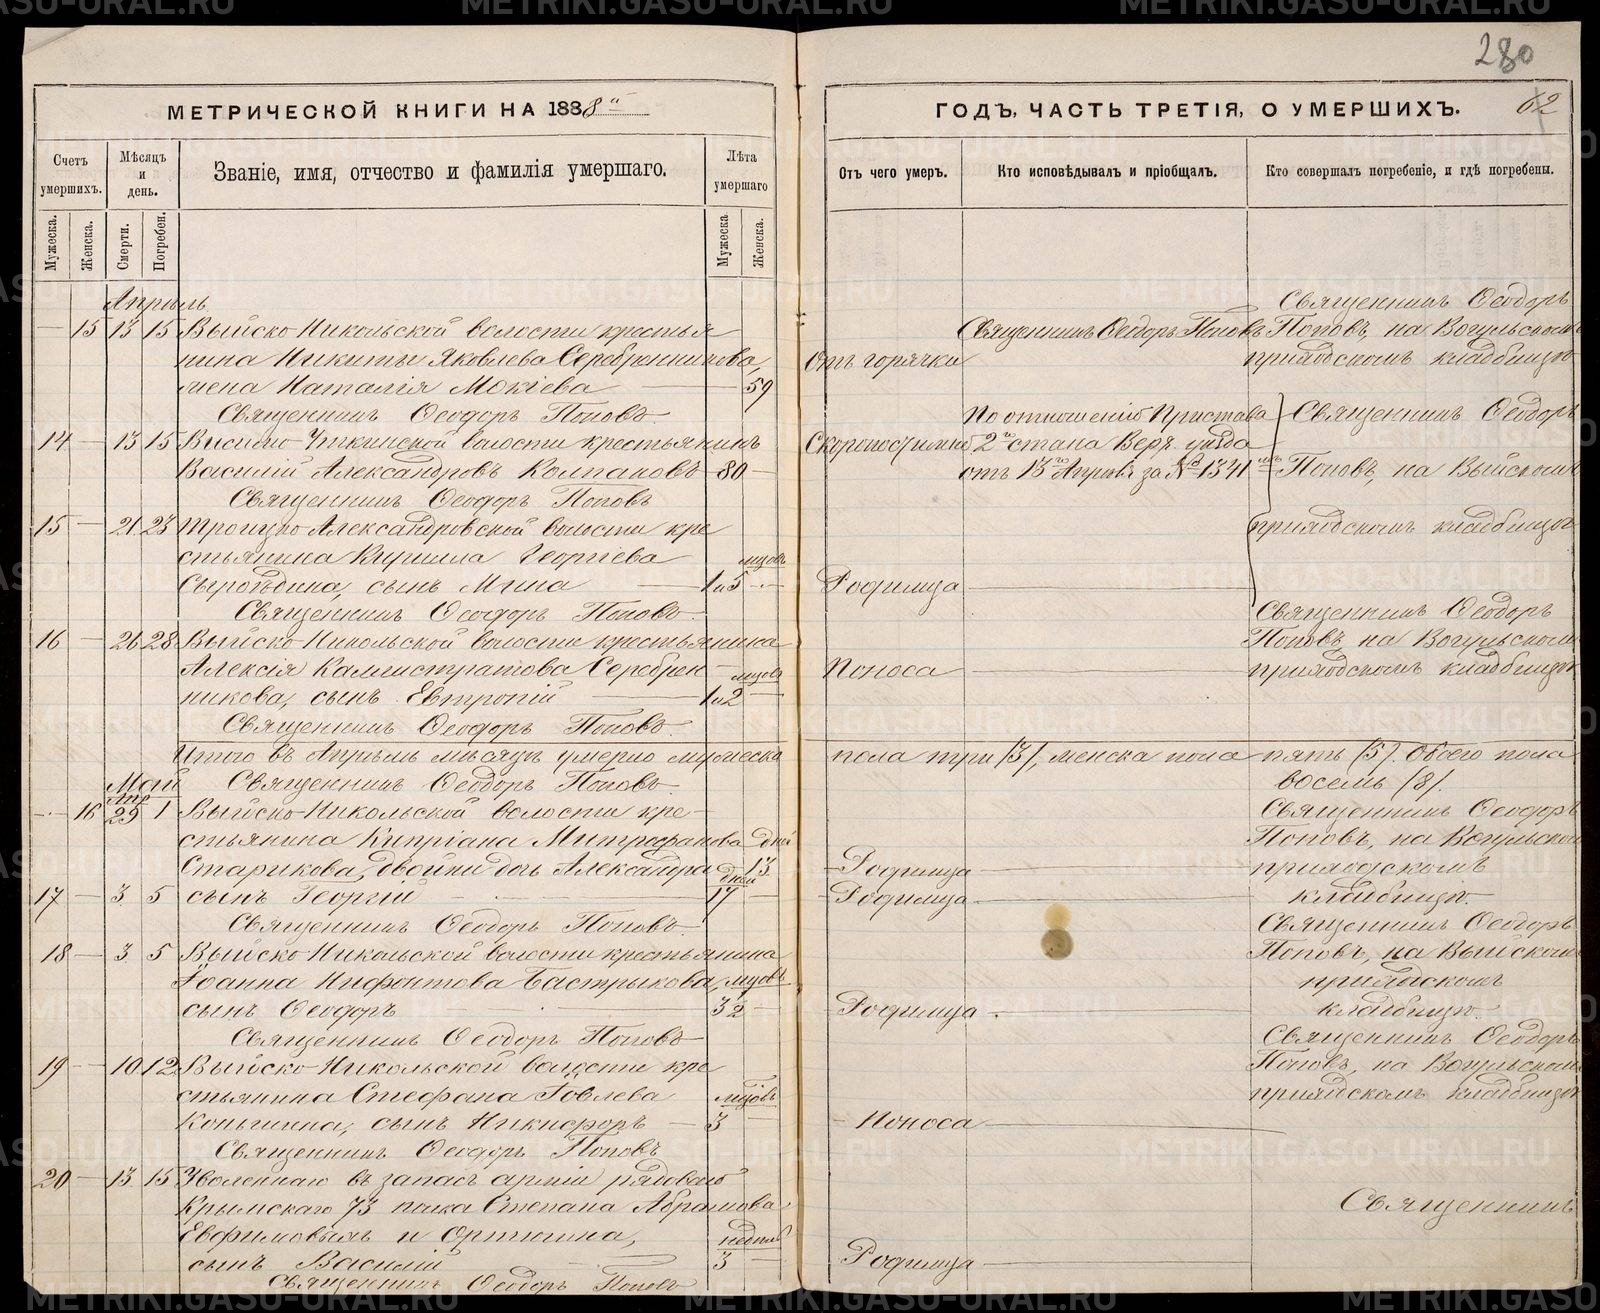 280
МЕТРИЧЕСКОЙ КНИГИ НА 1888 й
ГОДЪ, ЧАСТЬ ТРЕТІЯ, О УМЕРШИХЪ.
62
Счетъ умершихъ.
Мѣсяцъ и день.
Званіе, имя, отчество и фамилія умершаго.
Лѣта умершаго
Отъ чего умеръ.
Кто исповѣдывалъ и пріобщалъ.
Кто совершалъ погребеніе, и гдѣ погребены.
Мужеска.
Женска.
Смерти.
Погребен.
Мужеска
Женска.
Апрѣль
— 15 13 15 Выйско-Никольской волости крестья
нина Никиты Яковлева Серебренникова,
жена Наталія Мокіева — 59
Отъ горячки
Священникъ Ѳеодоръ Поповъ
Священникъ Ѳеодоръ
Поповъ, на Вогульскомъ
приходскомъ кладбищѣ
Священникъ Ѳеодоръ Поповъ
14 — 13 15 Висимо-Уткинской волости крестьянинъ
Василій Александровъ Колпаковъ 80 —
Скоропостижно
По отношенію Пристава
2го стана Верх. уѣзда
отъ 13го Апрѣля за № 1341
Священникъ Ѳеодоръ
Поповъ, на Выйскомъ
приходскомъ кладбищѣ
Священникъ Ѳеодоръ Поповъ
15 — 21 23 Троицко-Александровской волости кре
стьянина Кирилла Георгіева
Сыроѣдина, сынъ Мина — мцовъ 1 и 5 —
Родимца
Священникъ Ѳеодоръ Поповъ
16 — 26 28 Выйско-Никольской волости крестьянина
Алексія Каллистратова Серебрен
никова, сынъ Евтропій — мцовъ 1 и 2 —
Поноса
Священникъ Ѳеодоръ
Поповъ, на Вогульскомъ
приходскомъ кладбищѣ
Священникъ Ѳеодоръ Поповъ
Итого въ Апрѣлѣ мѣсяцѣ умерло мужеска
пола три /3/, женска пола пять /5/. Обоего пола
восемь /8/.
Священникъ Ѳеодоръ Поповъ
Май
Апр
— 16 29 1 Выйско-Никольской волости кре-
стьянина Кипріана Митрофанова
Старикова, двойни дочь Александра дней 13
Родимца
17 — 3 5 сынъ Георгій — дней 17
Родимца
Священникъ Ѳеодоръ
Поповъ, на Вогульском
приходскомъ
кладбищѣ
Священникъ Ѳеодоръ Поповъ.
18 — 3 5 Выйско-Никольской волости крестьянина
Іоанна Нифонтова Бастрыкова, мцовъ
сынъ Ѳеодоръ
Родимца
Священникъ Ѳеодоръ
Поповъ, на Выйскомъ
приходскомъ
кладбищѣ.
Священникъ Ѳеодоръ Поповъ
19 — 10 12 Выйско-Никольской волости кре
стьянина Стефана Іовлева
Коньшина, сынъ Никифоръ — мцовъ 3 —
Поноса
Священникъ Ѳеодоръ
Поповъ, на Вогульскомъ
приходскомъ кладбищѣ
Священникъ Ѳеодоръ Поповъ
20 — 13 15 Уволеннаго въ запасъ арміи рядоваго
Крымскаго 73 полка Степана Абрамова
Евфимовымъ и Ортюгина,
сынъ Василій недѣль 3 —
Родимца
Священникъ
Священникъ Ѳеодоръ Поповъ
METRIKI.GASO-URAL.RU